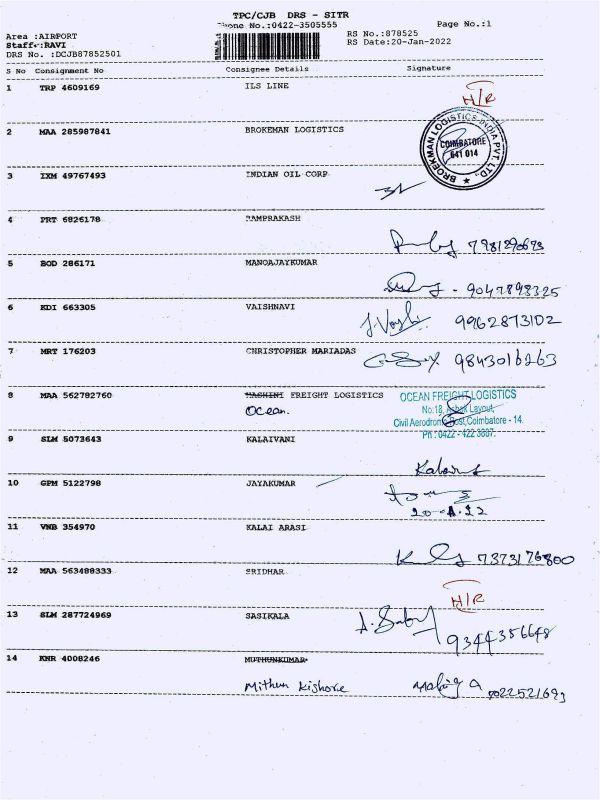 TPC/CJB DRS - SITR
Phone No.:0422-3505555
Page No.:1
Area :AIRPORT
RS No.:878525
Staff :RAVI
RS Date:20-Jan-2022
DRS No. :DCJB87852501
S No Consignment No Consignee Details Signature
1 TRP 4609169 ILS LINE
H/R
2 MAA 285987841 BROKEMAN LOGISTICS
BROEKMAN LOGISTICS INDIA PVT. LTD.,
COIMBATORE
641 014
3 IXM 49767493 INDIAN OIL CORP
4 PRT 6826178 RAMPRAKASH
5 BOD 286171 MANOAJAYKUMAR
9047898325
6 KDI 663305 VAISHNAVI
9962873102
7 MRT 176203 CHRISTOPHER MARIADAS
9843016263
8 MAA 562782760 MASHINI FREIGHT LOGISTICS
Ocean.
OCEAN FREIGHT LOGISTICS
No:18, Ashok Layout,
Civil Aerodrome Post, Coimbatore - 14.
Ph : 0422 - 422 3667.
9 SLM 5073643 KALAIVANI
10 GPM 5122798 JAYAKUMAR
11 VNB 354970 KALAI ARASI
7373176800
12 MAA 563488333 SRIDHAR
H/R
13 SLM 287724969 SASIKALA
9344356648
14 KNR 4008246 MUTHUNKUMAR
Mithun Kishore